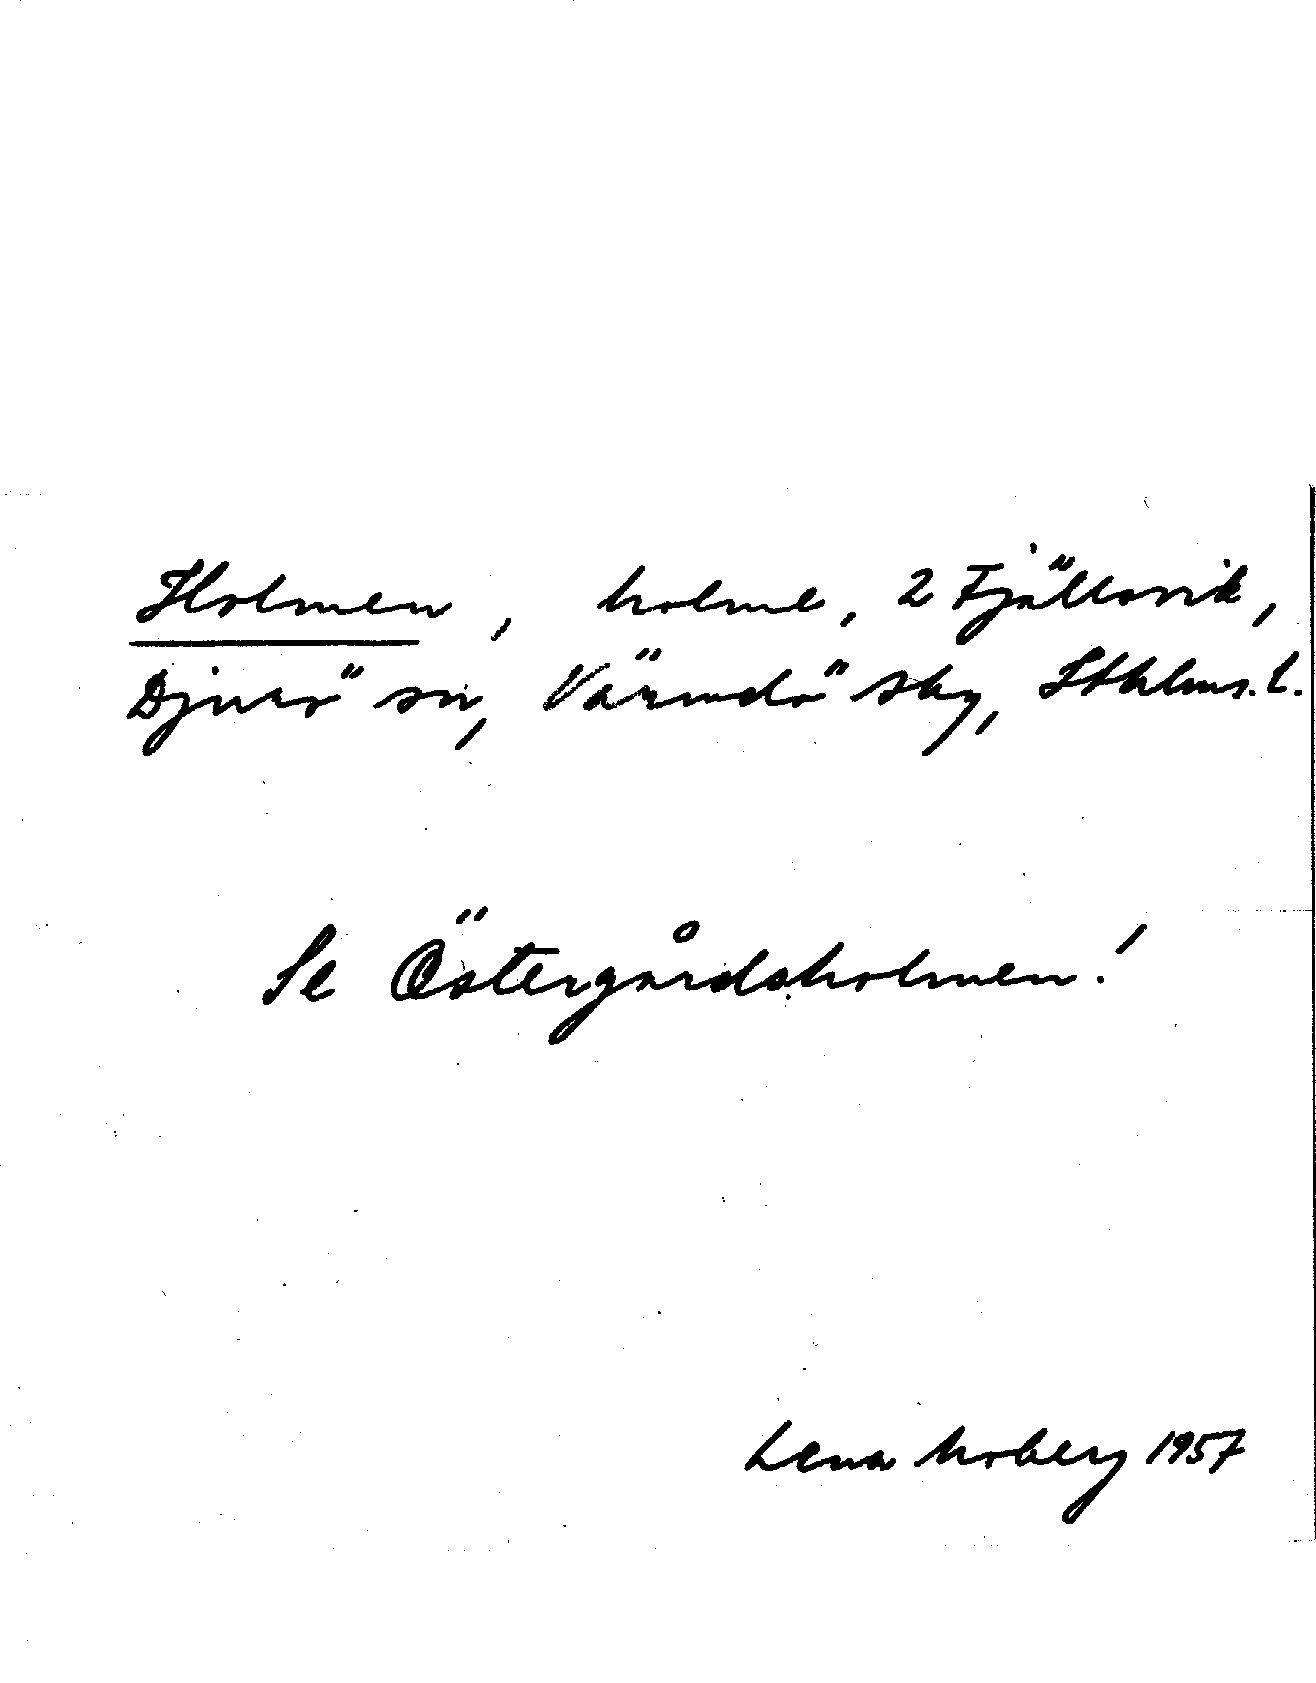 Holmen, holme, 2 Fjällsvik,
Djurö sn, Värmdö skg, Sthlms. l.
Se Östergårdsholmen!
Lena Moberg 1957